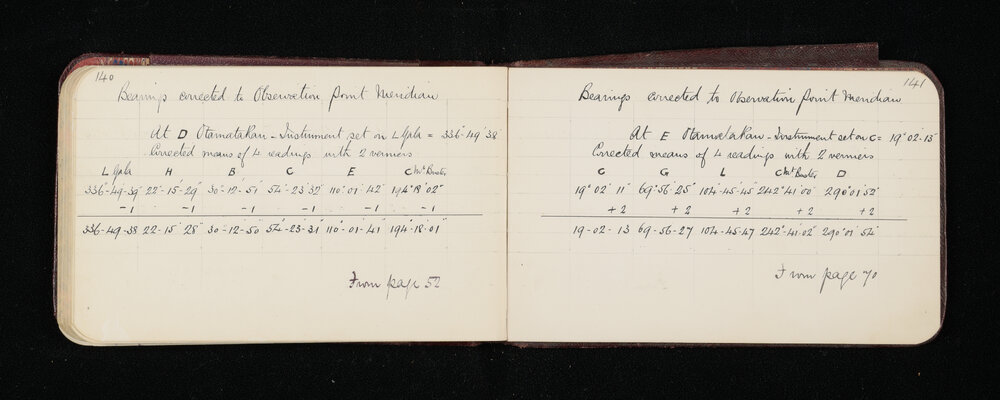 140
Bearings corrected to Observation Point Meridian
At D Otamatakau - Instrument set on L Gala = 336°-49'-38
Corrected means of 4 readings with 2 verniers
L Gala H B C E C Mt Buster
336°-49'-39" 22°-15'-29" 30°-12'-51" 54°-23'-32" 110°01'-42" 194°18'02"
-1 -1 -1 -1 -1 -1
336-49-38 22-15-28 30-12-50 54-23-31 110-01-41 194-18-01
From page 52
141
Bearings corrected to Observation Point Meridian
At E Otamatakau - Instrument set on C = 19°02-15
Corrected means of 4 readings with 2 verniers
C G L C Mt Buster D
19°02'11" 69°56'25" 104-45-45 242°41'00" 290°01'52"
+2 +2 +2 +2 +2
19-02-13 69-56-27 104-45-47 242°-41-02" 290°01'54"
From page 70